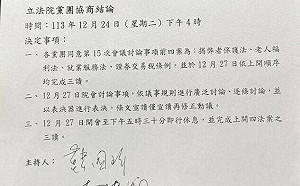 立法院黨團協商結論
時間：113年12月24日（星期二）下午4時
決定事項：
一、各黨團同意第15次會議討論事項前四案為：揭弊者保護法、老人福
利法、就業服務法、證券交易稅條例，並於12月27日依上開順序
均完成三讀。
二、12月27日院會討論事項，依議事規則進行廣泛討論、逐條討論，並
以表決器進行表決，條文宣讀僅宣讀再修正動議。
三、12月27日開會至下午五時三十分即行休息，並完成上開四法案之
三讀。
主持人：韓國瑜